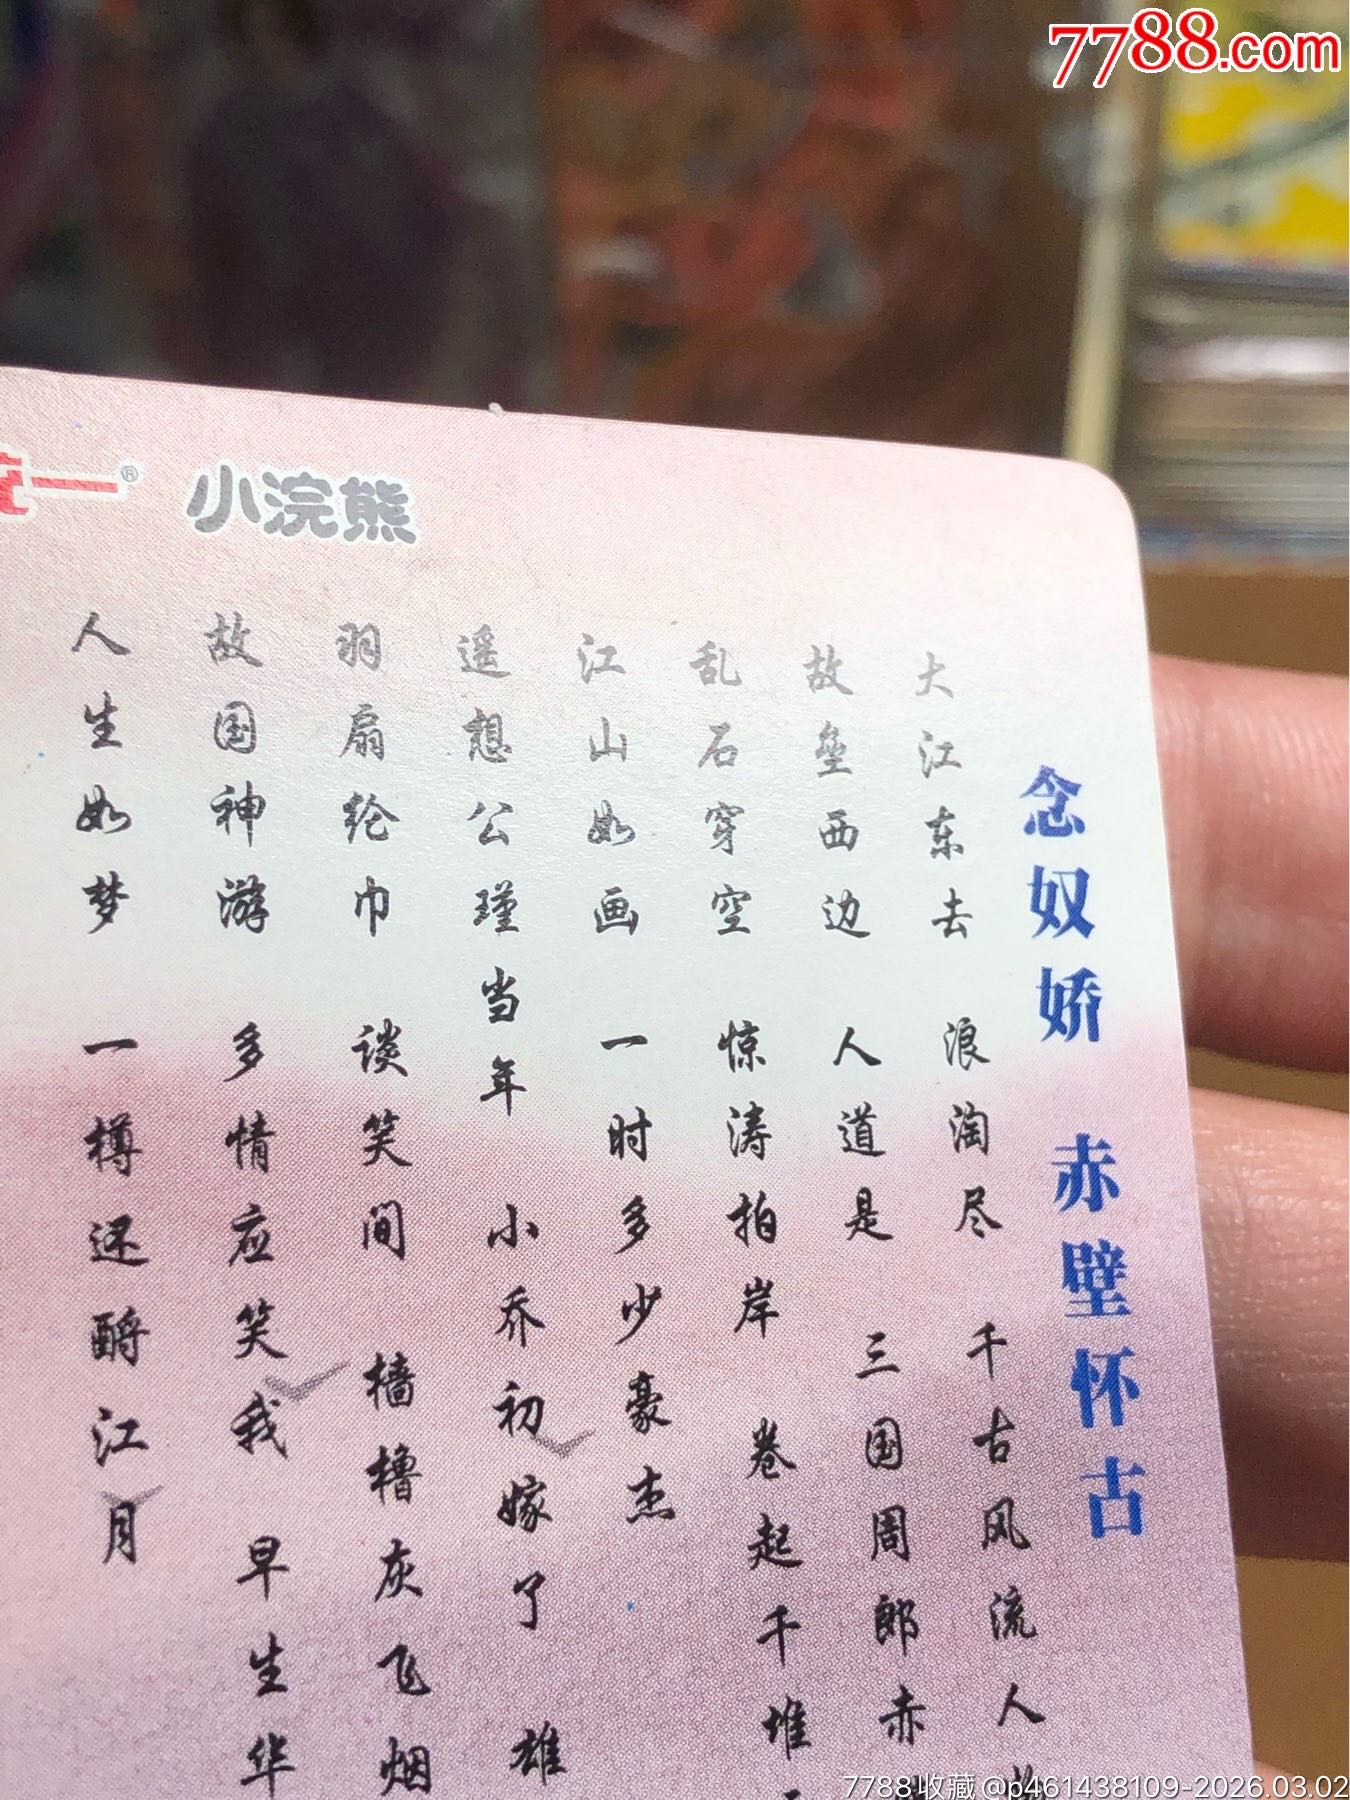 7788.com
一® 小浣熊
念奴娇 赤壁怀古
大江东去 浪淘尽 千古风流人
故垒西边 人道是 三国周郎赤
乱石穿空 惊涛拍岸 卷起千堆
江山如画 一时多少豪杰
遥想公瑾当年 小乔初嫁了 雄
羽扇纶巾 谈笑间 樯橹灰飞烟
故国神游 多情应笑我 早生华
人生如梦 一樽还酹江月
7788收藏@p461438109-2026.03.02